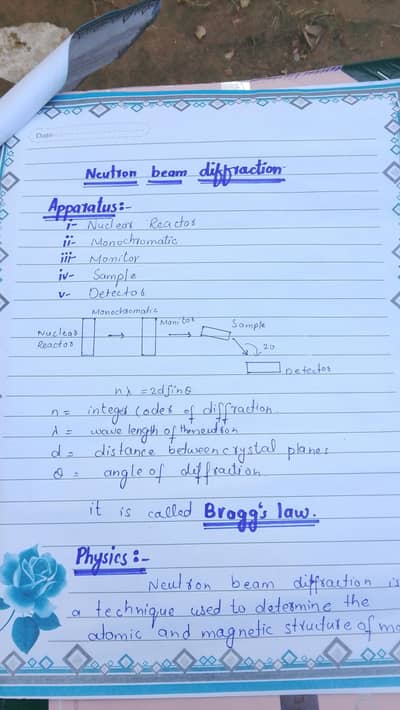 Date
Neutron beam diffraction
Apparatus:-
i- Nuclear Reactor
ii- Monochromatic
iii- Monitor
iv- Sample
v- Detector
Monochromatic
Nuclear Reactor
Monitor
Sample
2θ
Detector
nλ = 2dsinθ
n = integer (oder of diffraction
λ = wave length of the neutron
d = distance between crystal planes
θ = angle of diffraction
it is called Bragg's law.
Physics:-
Neutron beam diffraction is
a technique used to determine the
atomic and magnetic structure of